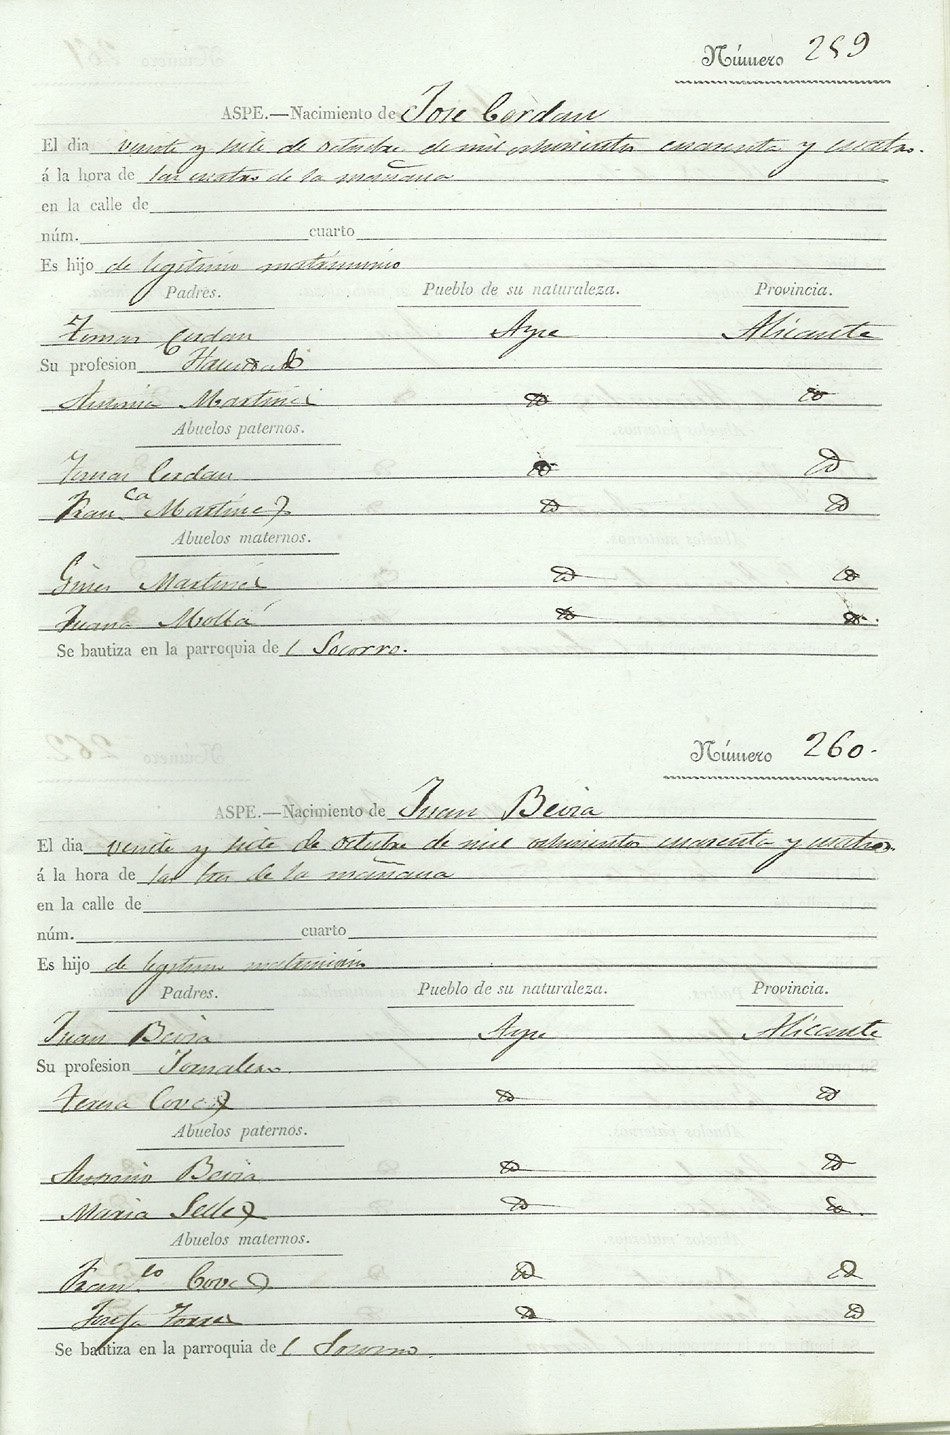 Número 259
ASPE.—Nacimiento de Jose Cerdan
El dia veinte y siete de octubre de mil ochocientos cuarenta y cuatro.
á la hora de las cuatro de la mañana
en la calle de
núm. cuarto
Es hijo de legitimo matrimonio
Padres. Pueblo de su naturaleza. Provincia.
Tomas Cerdan Aspe Alicante
Su profesion
Antonia Martinez
Abuelos paternos.
Tomas Cerdan
Fran.ca Martinez
Abuelos maternos.
Gines Martinez
Juana Mollá
Se bautiza en la parroquia del Socorro.
Número 260.
ASPE.—Nacimiento de Juan Beviá
El dia veinte y siete de octubre de mil ochocientos cuarenta y cuatro.
á la hora de las tres de la mañana
en la calle de
núm. cuarto
Es hijo de legitimo matrimonio
Padres. Pueblo de su naturaleza. Provincia.
Juan Bevia Aspe Alicante
Su profesion Jornalero.
Teresa Cover
Abuelos paternos.
Antonio Bevia
Maria Selles
Abuelos maternos.
Fran.co Cover
Josefa Torres
Se bautiza en la parroquia del Socorro.